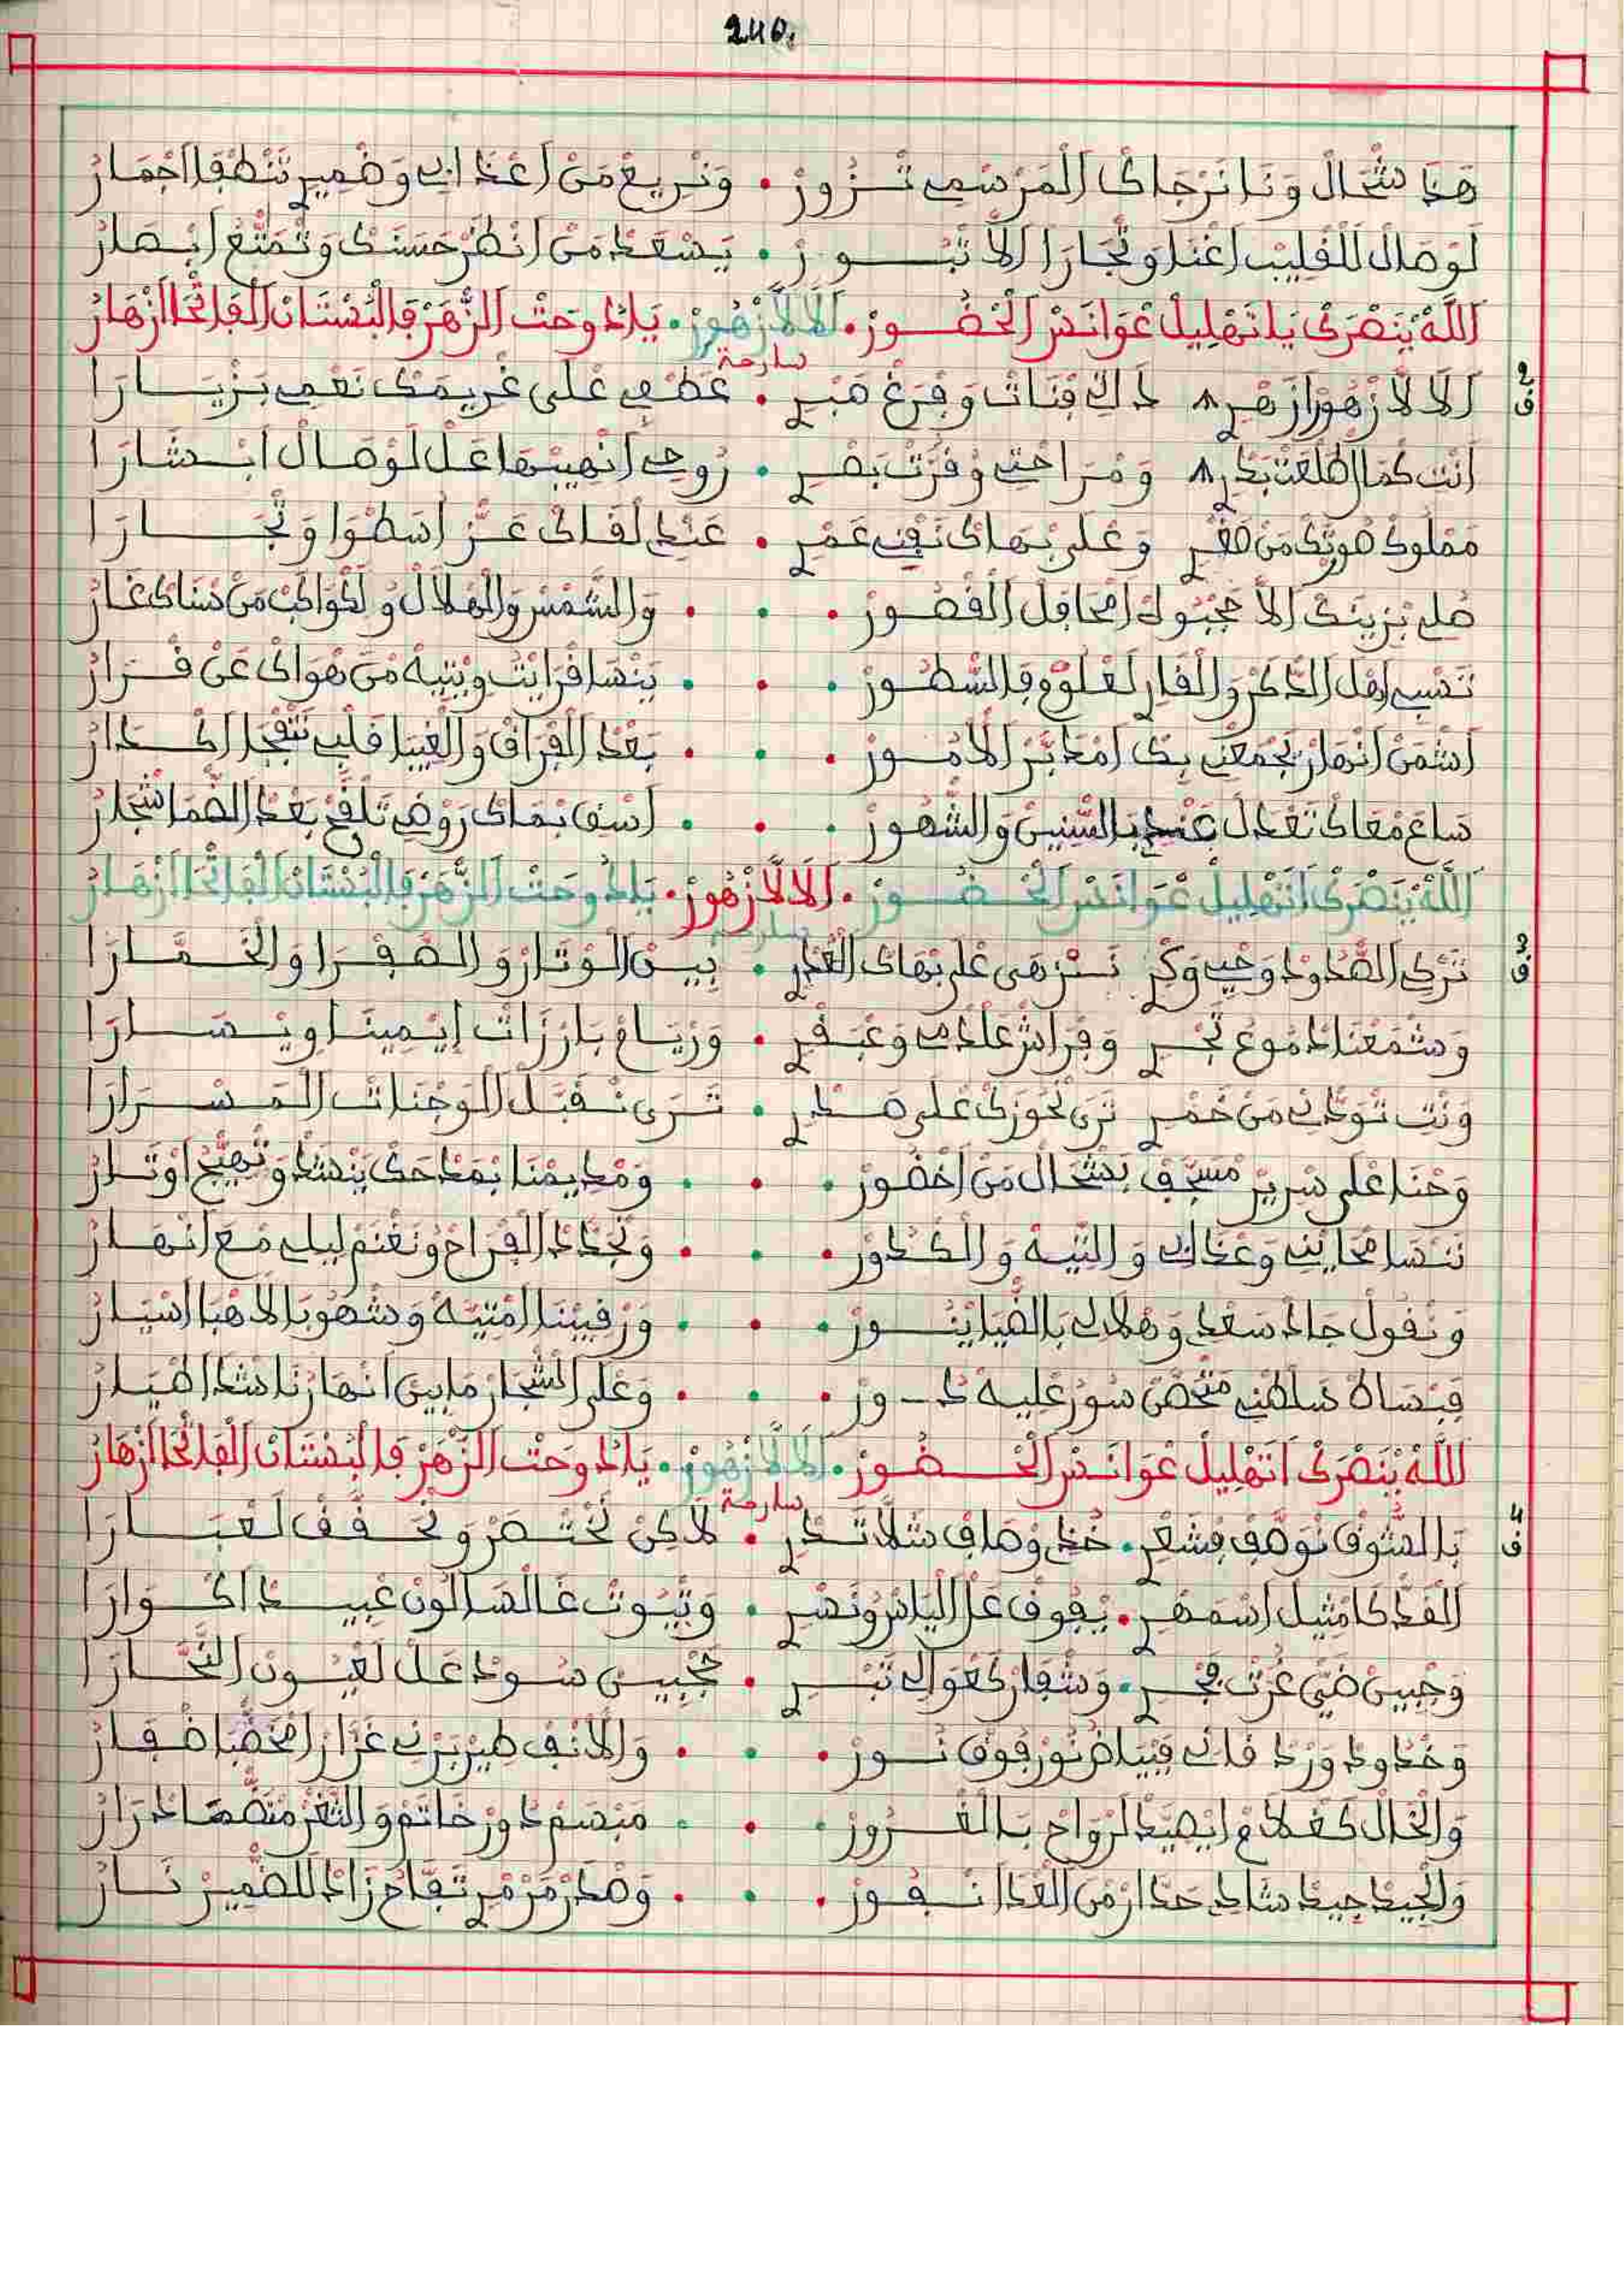 240.
هَذَا شْحَالْ وَنَا نَرْجَاكْ الْمَرْسْمِي تْـزُورْ • وَنْرِيعْ مَنْ اعْذَابِي وَضْمِيرِ تَنْطْفَا اجْمَارْ
لَوْصَالْ لَلْقْلِيبْ اغْنَا وَتْجَارَا الَا تْبُـورْ • يَسْعَدْ مَنْ انْظَرْ حَسْنَكْ وَتْمَتَّعْ ابْصَارْ
اللَّهْ يْنَصْرَكْ يَا تَهْلِيلْ عْوَانَسْ الْحْضُـورْ • لَالَّا زْهُورْ • يَا دُوحَتْ الزّْهَرْ فَالْبُسْتَانْ الْفَاتْحَا ازْهَارْ
سارحة
ق2 لَالَّا زْهُورْ ازَهْرِ ذَاكْ فْنَاتْ وَفْرَغْ صَبْرِ • عَطْفِي عْلَى غْرِيمَكْ نَعْمِي بَزْيَـارَا
أنْتِ كمَا طَلْعَتْ بَدْرِ وَمْرَاحْتِي وْقُرَّتْ بَصْرِ • رُوحِي انْهِيبْهَا عَلْ لَوْصَالْ ابْـشَارَا
مَمْلُوكْ هْوِيتَكْ مَنْ صَغْرِ وَعْلَى بْهَاكْ نَفْنِي عَمْرِ • عَنْدِي لْقَاكْ عَـزّْ اسَطْوَا وَتْجَـارَا
صْلِي بْزِينَكْ الَا حَجْبُوكْ امْحَافَلْ الْقْصُـورْ • • • وَالشَّمْسْ وَالْهْلَالْ وُلَكْوَاكَبْ مَنْ سْنَاكْ غَارْ
نَسْبِي اهْلْ الذَّكْرْ وَالْقَارِ لَعْلُومْ فَالسّْطُـورْ • • • يَنْسَا قْرَايْتُ وِيْتِيهْ مَنْ هْوَاكْ عَنْ قْـرَارْ
أشْمَنْ انْهَارْ يَجْمَعْنِي بِكْ امْدَبَّرْ الَامُـورْ • • • بَعْدْ الْفْرَاقْ وَالْغِيبَا قَلْبِي تَنْفْجَا اكْـدَارْ
سَاعَ مْعَاكْ تَعْدَلْ عَنْدِي بَالسّْنِينْ وَالشّْهُورْ • • • اسْقِ بْمَاكْ رَوْضِي تَلْقَحْ بَعْدْ الضّْمَا شْجَارْ
اللَّهْ يْنَصْرَكْ اتَهْلِيلْ عْوَانَسْ الْحْـضُـورْ • لَالَّا زْهُورْ • يَا دُوحَتْ الزّْهَرْ فَالْبُسْتَانْ الْفَاتْحَا ازْهَارْ
سارحة
ق3 تَرْكِ الصّْدُودْ وَجِي وَكْرِ نَـزْهَى عْلَى بْهَاكْ الْعُذْرِ • بِيـنْ الْوْتَارْ وَالصَّفْـرَا وَالْخْـمَّـارَا
وَشْمَعْنَا دْمُوعُ تَجْـرِ وَفْرَاشْ عَلْدْمِي وَعْبَقْرِ • وَرْيَـاحْ بَارْزَاتْ إيْـمِينَا وِيْـسَـارَا
وَنْتِ تْوَدّْنِي مَنْ خَمْرِ تَرَى نْحُوزَكْ عْلَى صَـدْرِ • تَـرَى نْـقَبَّلْ الْوَجْنَاتْ الْمَـسْـرَارَا
وَحْنَا عْلَى سْرِيرْ مْسَجَّفْ بَشْحَالْ مَنْ اخْضُورْ • • • وَمْدِيمْنَا بْمَدْحَكْ يَنْشَدْ وَتْهَيَّجْ اوْتَـارْ
نَنْسَا مْحَايْنِي وَعْذَابِي وَالتِّيـهْ وَالْكْدُورْ • • • وَنْجَدَّدْ الْفْرَاحْ وُنَغْنَمْ لِيلِي مْعَ انْهَـارْ
وَنْقُولْ جَادْ سَعْدِي وَهْلَالِي بَالضّْيَا يْنُـورْ • • • وَرْقِيبْنَا امْتِيَّهْ وَشْهُوبَا لَاهْبَا اسْيَـارْ
فِبْسَاطْ سَلْطْنِي مْحَصَّنْ سُورُ عْلِيهْ دُورْ • • • وَعْلَى الشْجَارْ مَابِينْ انْهَارْنَا شْدَا اطْيَارْ
اللَّهْ يْنَصْرَكْ اتَهْلِيلْ عْوَانَـسْ الْحْـضُـورْ • لَالَّا زْهُورْ • يَا دُوحَتْ الزّْهَرْ فَالْبُسْتَانْ الْفَاتْحَا ازْهَارْ
سارحة
ق4 بَالشُّوقْ نْوَصَّفْ فِشَعْرِ • خُدْ وْصَافْ شَلَّا تَـدْرِ • لَاكِنْ نَخْـتَـصَرْ وَنْخَـفَّفْ لَعْبَـارَا
الْقَدّْ كَا مْثِيلْ اسَمْهَرِ • يْفُوقْ عَلْ الْيَاسْ وُنَسْرِ • وَتْيُـوتْ غَالْسَالُونْ عْبِيـدْ اكْـوَارَا
وَجْبِينْ ضَيّْ غُرَّتْ فَجْـرِ • وَشْفَارْ كَعْوَالِي تَبْـرِ • حَجْبِيـنْ سُـودْ عَلْ لَعْيُـونْ النَّحَّـارَا
وَخْدُودْ وَرْدْ قَانِي فِبْيَاضْ نُورْ فُوقْ نُـورْ • • • وَالْانْفْ طِيرْ بَرْنِي غَزَّازْ امْخَضَّبَ اضْفَارْ
وَالْخَالْ كَغْلَامْ ايْصَيَّدْ لَرْوَاحْ بَـالْغْـرُورْ • • • مَبْسَمْ دُورْ خَاتَمْ وَالثَّغْرْ مْنَضّْمَا دْرَارْ
وَالْجِيدْ جِيدْ شَادِي حَدَّارْ مْنَ الْعْدَا نْـفُـورْ • • • وَصْدَرْ مَرْمْرِ تَفَّاحُ زَادْ لَلضّْمِيرْ نَـارْ